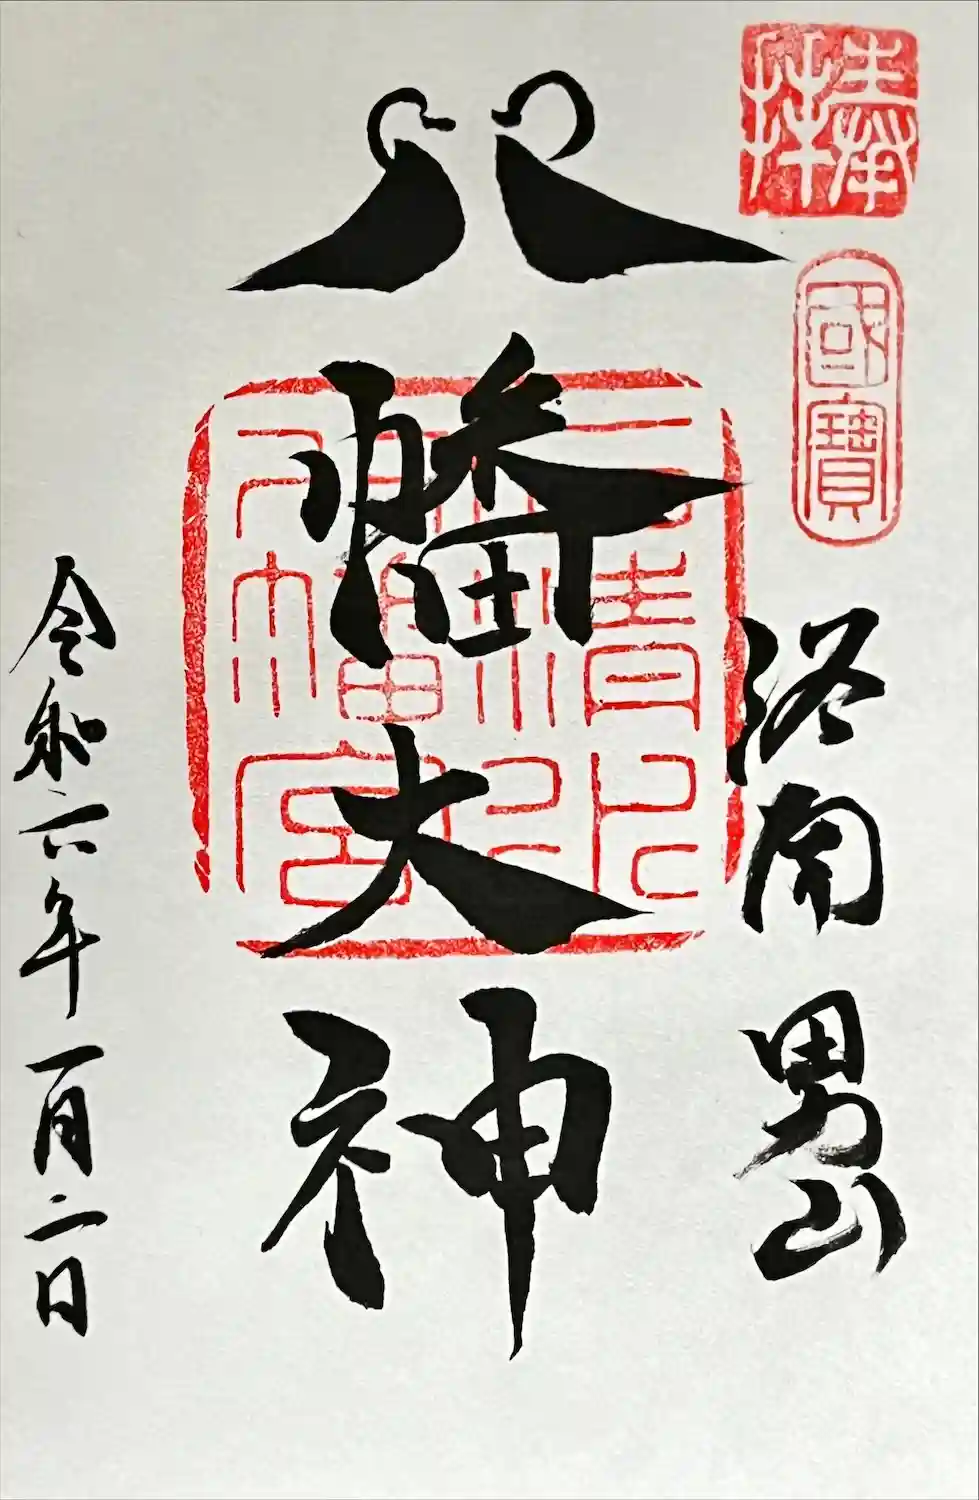 奉拝
國寶
洛南 男山
八幡大神
石清水八幡宮
令和六年一月二日